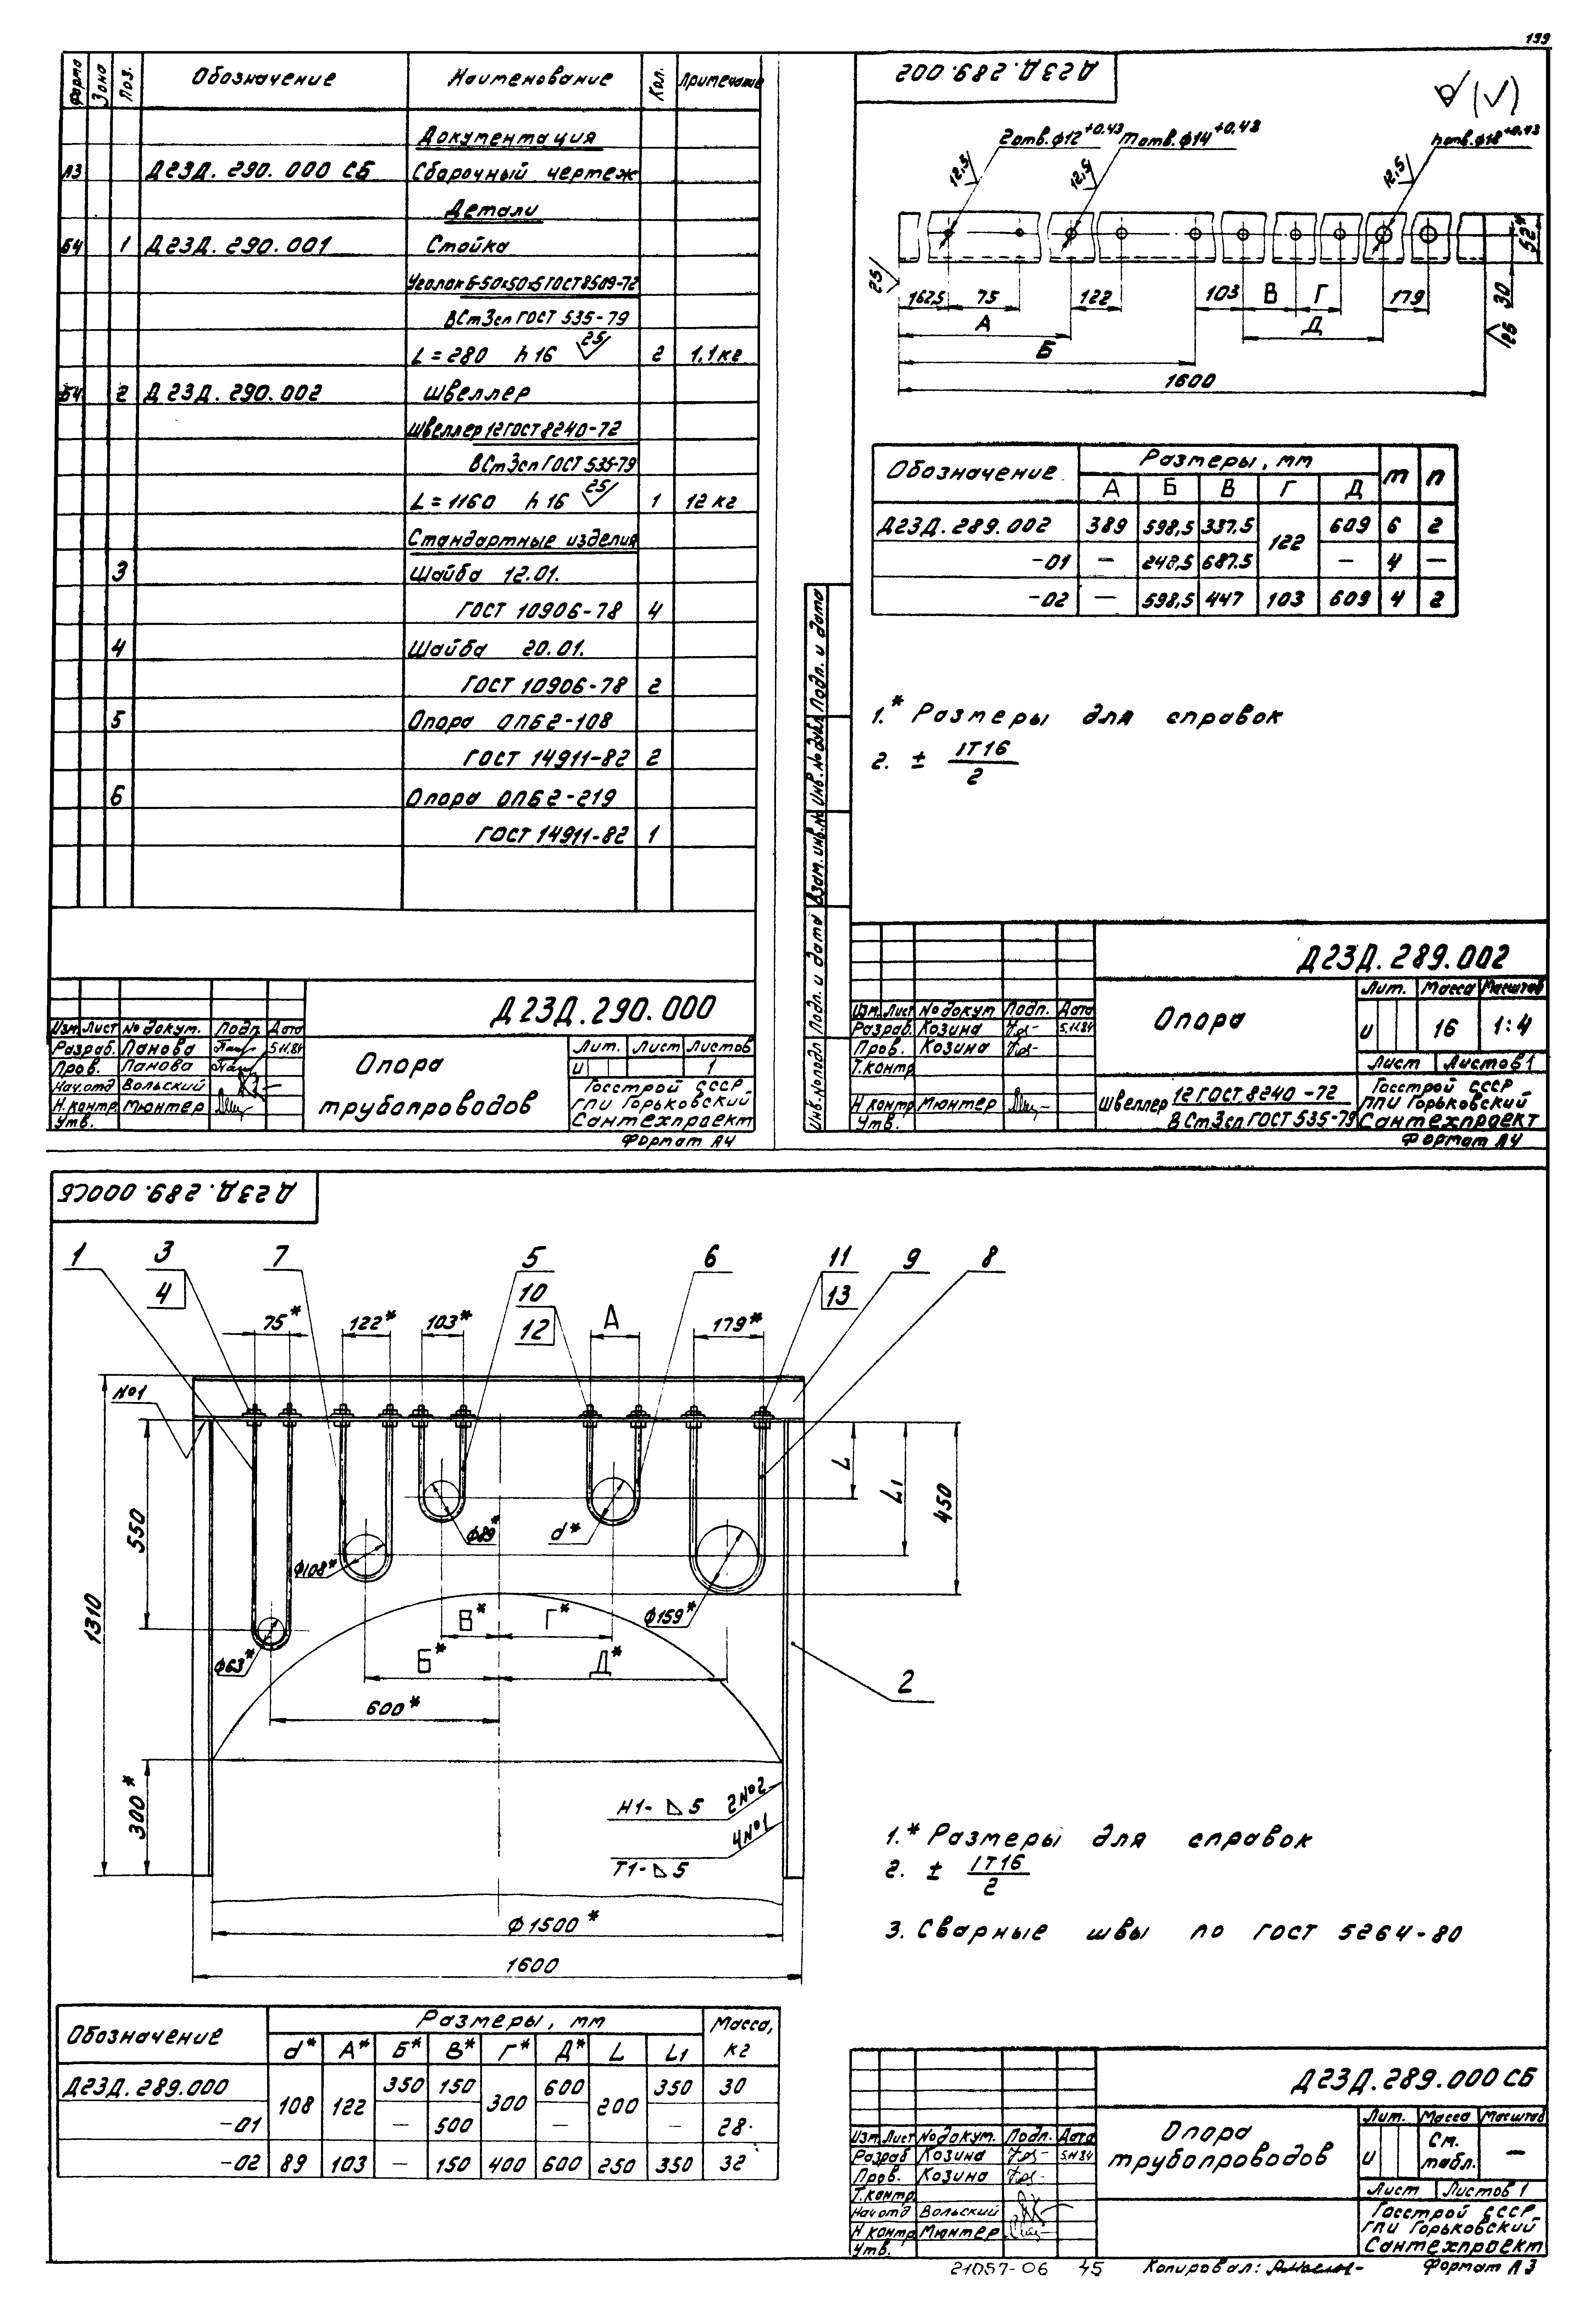 199
Форма Зона Поз. Обозначение Наименование Кол. Примечание
Документация
А3 Д23Д. 290. 000 СБ Сборочный чертеж
Детали
Б4 1 Д23Д. 290.001 Стойка
Уголок Б-50х50х5 ГОСТ 8509-72
ВСт3сп ГОСТ 535-79
L = 280 h16 25 2 1,1 кг
Б4 2 Д23Д. 290.002 Швеллер
Швеллер 12 ГОСТ 8240-72
ВСт3сп ГОСТ 535-79
L = 1160 h16 25 1 12 кг
Стандартные изделия
3 Шайба 12.01.
ГОСТ 10906-78 4
4 Шайба 20.01.
ГОСТ 10906-78 2
5 Опора ОПБ2-108
ГОСТ 14911-82 2
6 Опора ОПБ2-219
ГОСТ 14911-82 1
Д23Д.290.000
Изм. Лист № докум. Подп. Дата
Разраб. Панова 5.11.84
Пров. Панова
Нач.отд Вольский
Н.контр. Мюнтер
Утв.
Опора
трубопроводов
Лит. Лист Листов
И 1
Госстрой СССР
ГПИ Горьковский
Сантехпроект
Формат А4
Д23Д.289.002
2 отв. ф12+0,43 m отв. ф14+0,43 n отв. ф18+0,43
12,5 12,5 12,5
25 162,5 75 122 103 В Г 179 52* 30 25
А Д
Б
1600
Обозначение Размеры, мм m n
А Б В Г Д
Д23Д.289.002 389 598,5 337,5 122 609 6 2
-01 — 248,5 687,5 — 4 —
-02 — 598,5 447 103 609 4 2
1.* Размеры для справок
2. ± IT16
2
Инв.№ подл Подп. и дата Взам.инв.№ Инв.№ дубл Подп. и дата
Д23Д.289.002
Изм. Лист № докум Подп. Дата
Разраб. Козина 5.11.84
Пров. Козина
Т.контр.
Н контр. Мюнтер
Утв.
Опора
Лит. Масса Масштаб
И 16 1:4
Лист Листов 1
Швеллер 12 ГОСТ 8240-72
ВСт3сп ГОСТ 535-79
Госстрой СССР
ГПИ Горьковский
Сантехпроект
Формат А4
Д23Д.289.000СБ
1 3 7 5 6 11 9 8
4 10 13
12
75* 122* 103* А 179*
№1
L L1 450
550
1310
ф89* d*
ф108*
ф159*
ф63*
В* Г*
Б* Д*
2
600*
300*
Н1-◺5 2№2
4№1
Т1-◺5
ф1500*
1600
1.* Размеры для справок
2. ± IT16
2
3. Сварные швы по ГОСТ 5264-80
Обозначение Размеры, мм Масса, кг
d* А* Б* В* Г* Д* L L1
Д23Д.289.000 108 122 350 150 300 600 200 350 30
-01 — 500 — — 28
-02 89 103 — 150 400 600 250 350 32
Д23Д.289.000 СБ
Изм. Лист № докум. Подп. Дата
Разраб Козина 5.11.84
Пров. Козина
Т.контр.
Нач отд Вольский
Н контр. Мюнтер
Утв.
Опора
трубопроводов
Лит. Масса Масштаб
И См. табл. —
Лист Листов 1
Госстрой СССР
ГПИ Горьковский
Сантехпроект
21057-06 45 Копировал: Формат А3